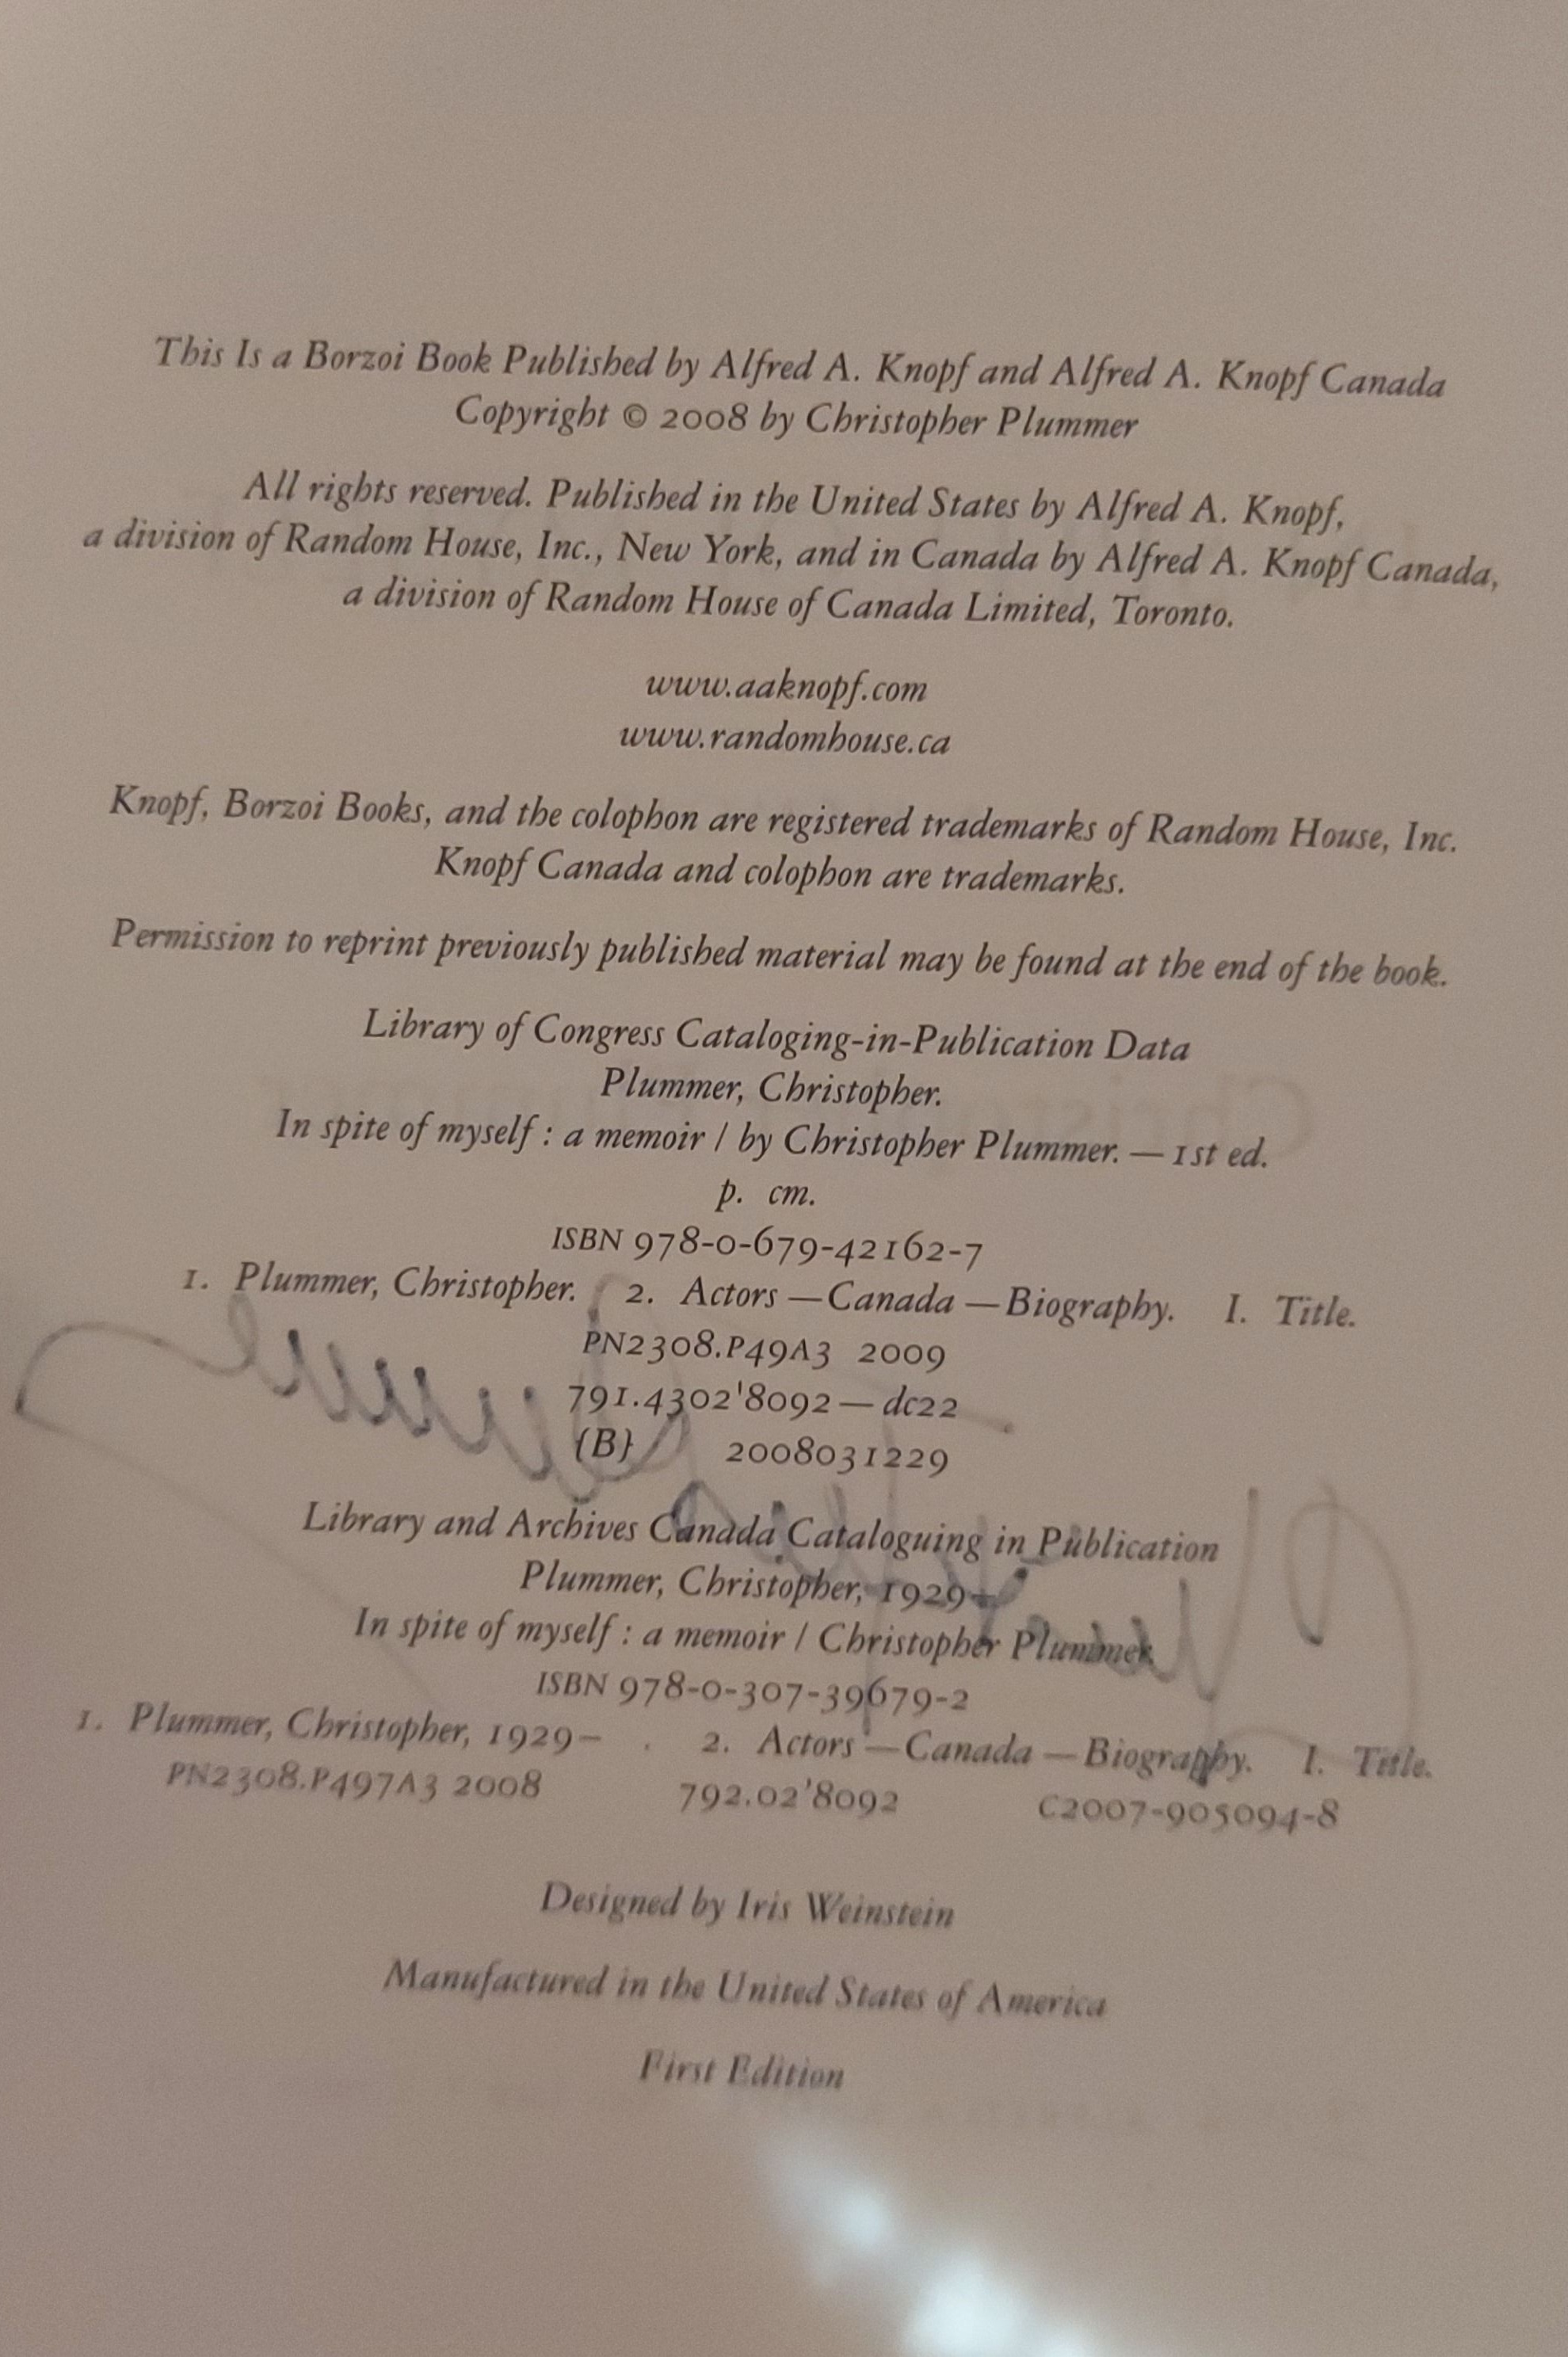 This Is a Borzoi Book Published by Alfred A. Knopf and Alfred A. Knopf Canada
Copyright © 2008 by Christopher Plummer
All rights reserved. Published in the United States by Alfred A. Knopf,
a division of Random House, Inc., New York, and in Canada by Alfred A. Knopf Canada,
a division of Random House of Canada Limited, Toronto.
www.aaknopf.com
www.randomhouse.ca
Knopf, Borzoi Books, and the colophon are registered trademarks of Random House, Inc.
Knopf Canada and colophon are trademarks.
Permission to reprint previously published material may be found at the end of the book.
Library of Congress Cataloging-in-Publication Data
Plummer, Christopher.
In spite of myself : a memoir / by Christopher Plummer. — 1st ed.
p. cm.
ISBN 978-0-679-42162-7
1. Plummer, Christopher. 2. Actors —Canada —Biography. I. Title.
PN2308.P49A3 2009
791.4302'8092 — dc22
{B} 2008031229
Library and Archives Canada Cataloguing in Publication
Plummer, Christopher, 1929–
In spite of myself : a memoir / Christopher Plummer.
ISBN 978-0-307-39679-2
1. Plummer, Christopher, 1929– . 2. Actors —Canada —Biography. I. Title.
PN2308.P497A3 2008 792.02'8092 C2007-905094-8
Designed by Iris Weinstein
Manufactured in the United States of America
First Edition